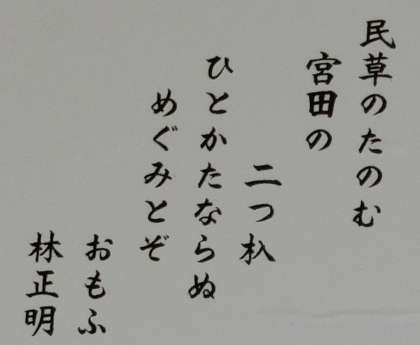 民草のたのむ
宮田の
二つ杁
ひとかたならぬ
めぐみとぞ
おもふ
林正明